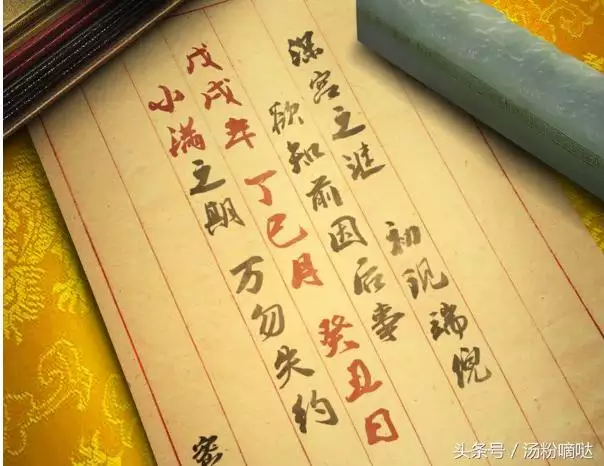 深宫之谜 初现端倪
欲知前因后事
戊戌年 丁巳月 癸丑日
小满之期 万勿失约
头条号 / 汤粉嘀哒